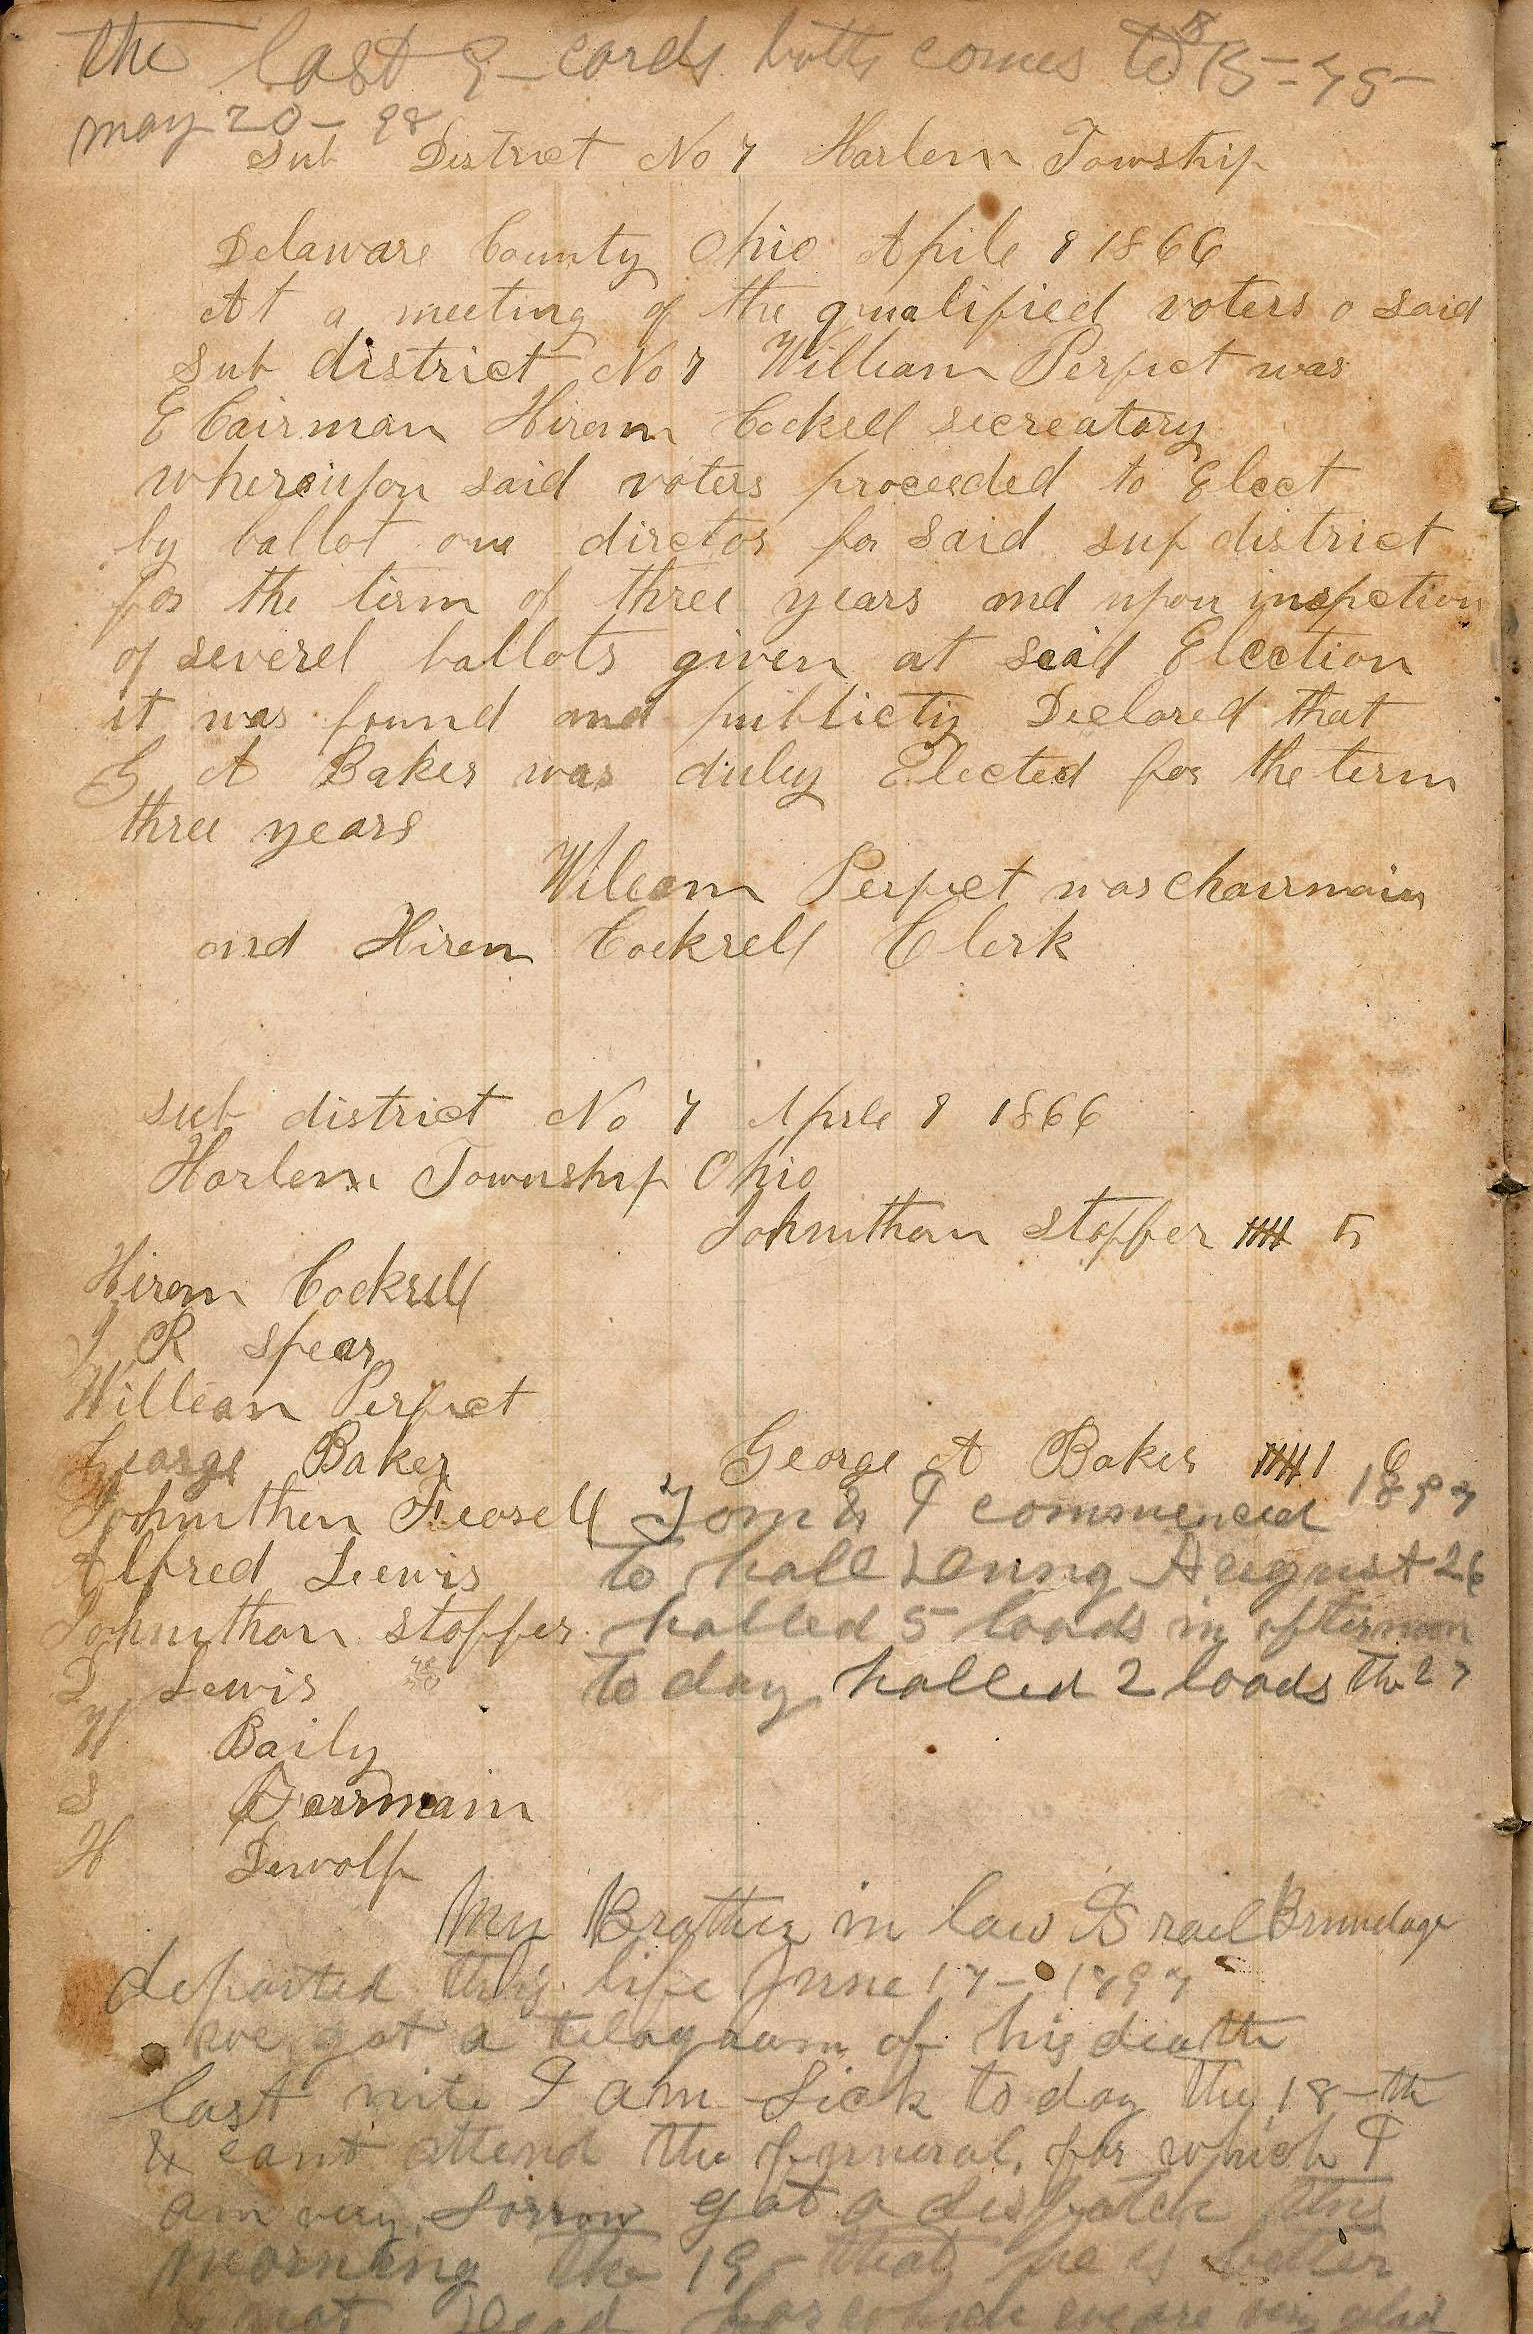 the last 9 - cords butts comes to $15=75-
may 20 - 98
Sub District No 7 Harlem Towship
Delaware County Ohio Aprile 9 1866
At a meeting of the qualified voters o said
Sub district No 7 William Perfect was
Cairman Hiram Cockell secreatory
whereupon said voters proceeded to Elect
by ballot one dirctor for said sup district
for the term of three years and upon inspction
of severel ballots given at said Election
it was found and publicty Declared that
G A Baker was duley Elected for the term
three years
Wileam Perfect was chairmain
and Hiram Cockrell Clerk
sub district No 7 Aprile 9 1866
Harlem Township Ohio
Johnithan stopfer 5
Hiram Cockrell
J R Spear
William Perfect
George Baker
George A Baker 6
Johnithen Fearsell
Tom & I commenced 1897
Alfred Lewis
to hall Dung August 26
Johnithan stopfer
halled 5 loads in afternoon
D Lewis
to day halled 2 loads the 27
W Baily
S
H Dewolf
My Brother in law Israel Brundage
departed this life June 17 - 1897
we got a telagram of his death
last nite I am Sick to day the 18 - th
& cant attend the funeral, for which I
am very Sorrow got a dispatch this
morning the 19 - that he is better
& not Dead for which we are very glad